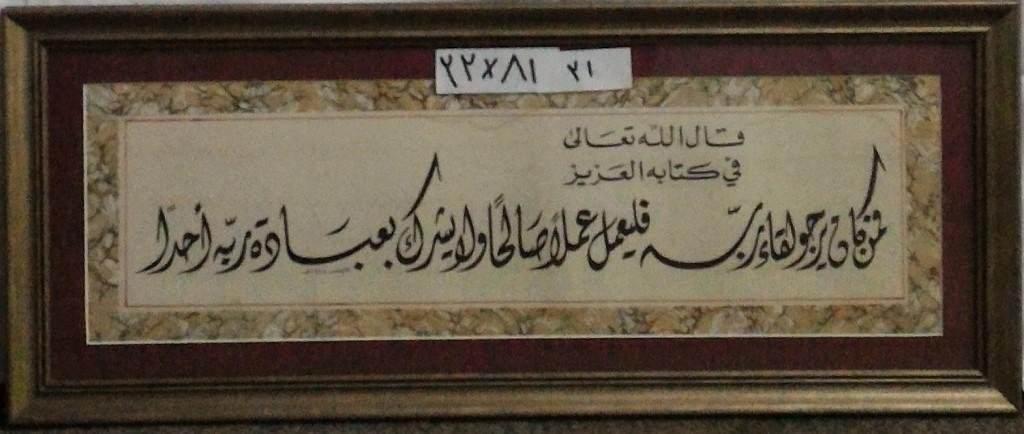 ٢٢×٨١ ٣١
قال الله تعالى
في كتابه العزيز
فمن كان يرجو لقاء ربه فليعمل عملاً صالحًا ولا يشرك بعبادة ربه أحدًا